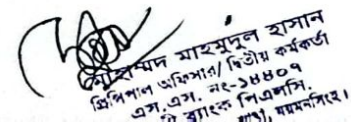 মোহাম্মদ মাহমুদুল হাসান
প্রিন্সিপাল অফিসার/ দ্বিতীয় কর্মকর্তা
এস.এস. নং-১৪৪০৭
ব্যাংক পিএলসি.
শাখা, ময়মনসিংহ।